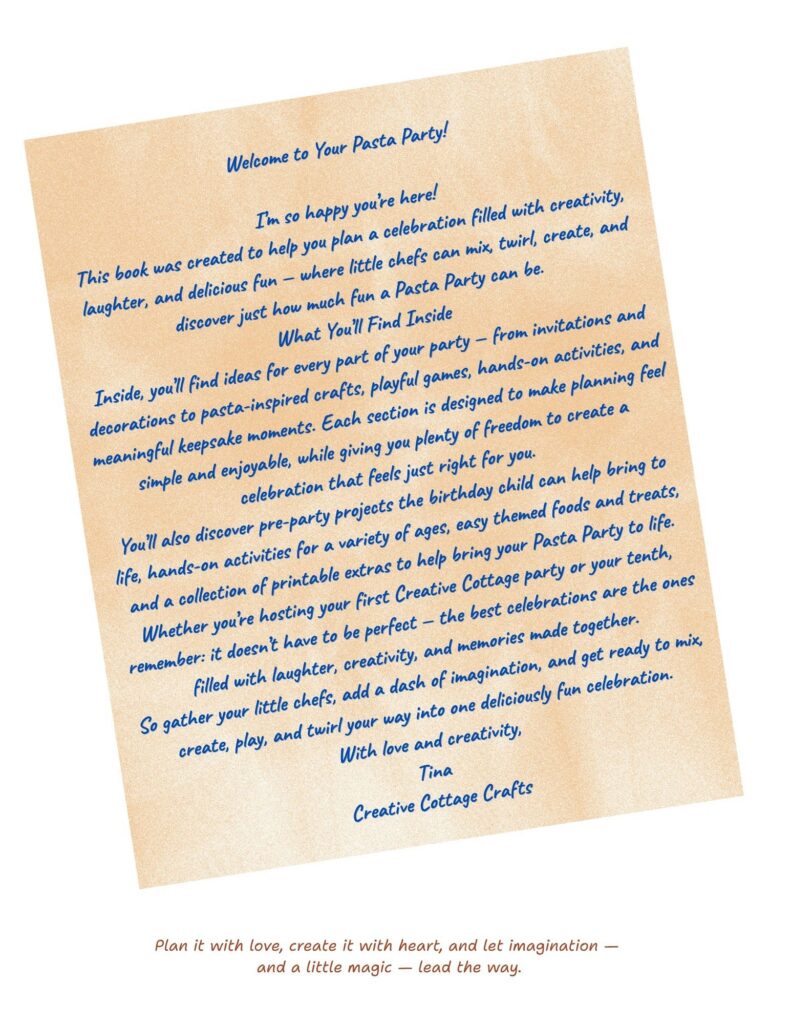 Welcome to Your Pasta Party!
I'm so happy you're here!
This book was created to help you plan a celebration filled with creativity,
laughter, and delicious fun — where little chefs can mix, twirl, create, and
discover just how much fun a Pasta Party can be.
What You'll Find Inside
Inside, you'll find ideas for every part of your party — from invitations and
decorations to pasta-inspired crafts, playful games, hands-on activities, and
meaningful keepsake moments. Each section is designed to make planning feel
simple and enjoyable, while giving you plenty of freedom to create a
celebration that feels just right for you.
You'll also discover pre-party projects the birthday child can help bring to
life, hands-on activities for a variety of ages, easy themed foods and treats,
and a collection of printable extras to help bring your Pasta Party to life.
Whether you're hosting your first Creative Cottage party or your tenth,
remember: it doesn't have to be perfect — the best celebrations are the ones
filled with laughter, creativity, and memories made together.
So gather your little chefs, add a dash of imagination, and get ready to mix,
create, play, and twirl your way into one deliciously fun celebration.
With love and creativity,
Tina
Creative Cottage Crafts
Plan it with love, create it with heart, and let imagination —
and a little magic — lead the way.